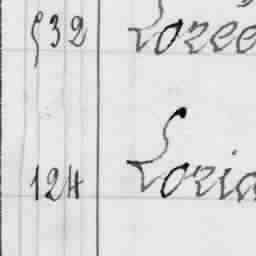 532 Lozeo
124 Lozia